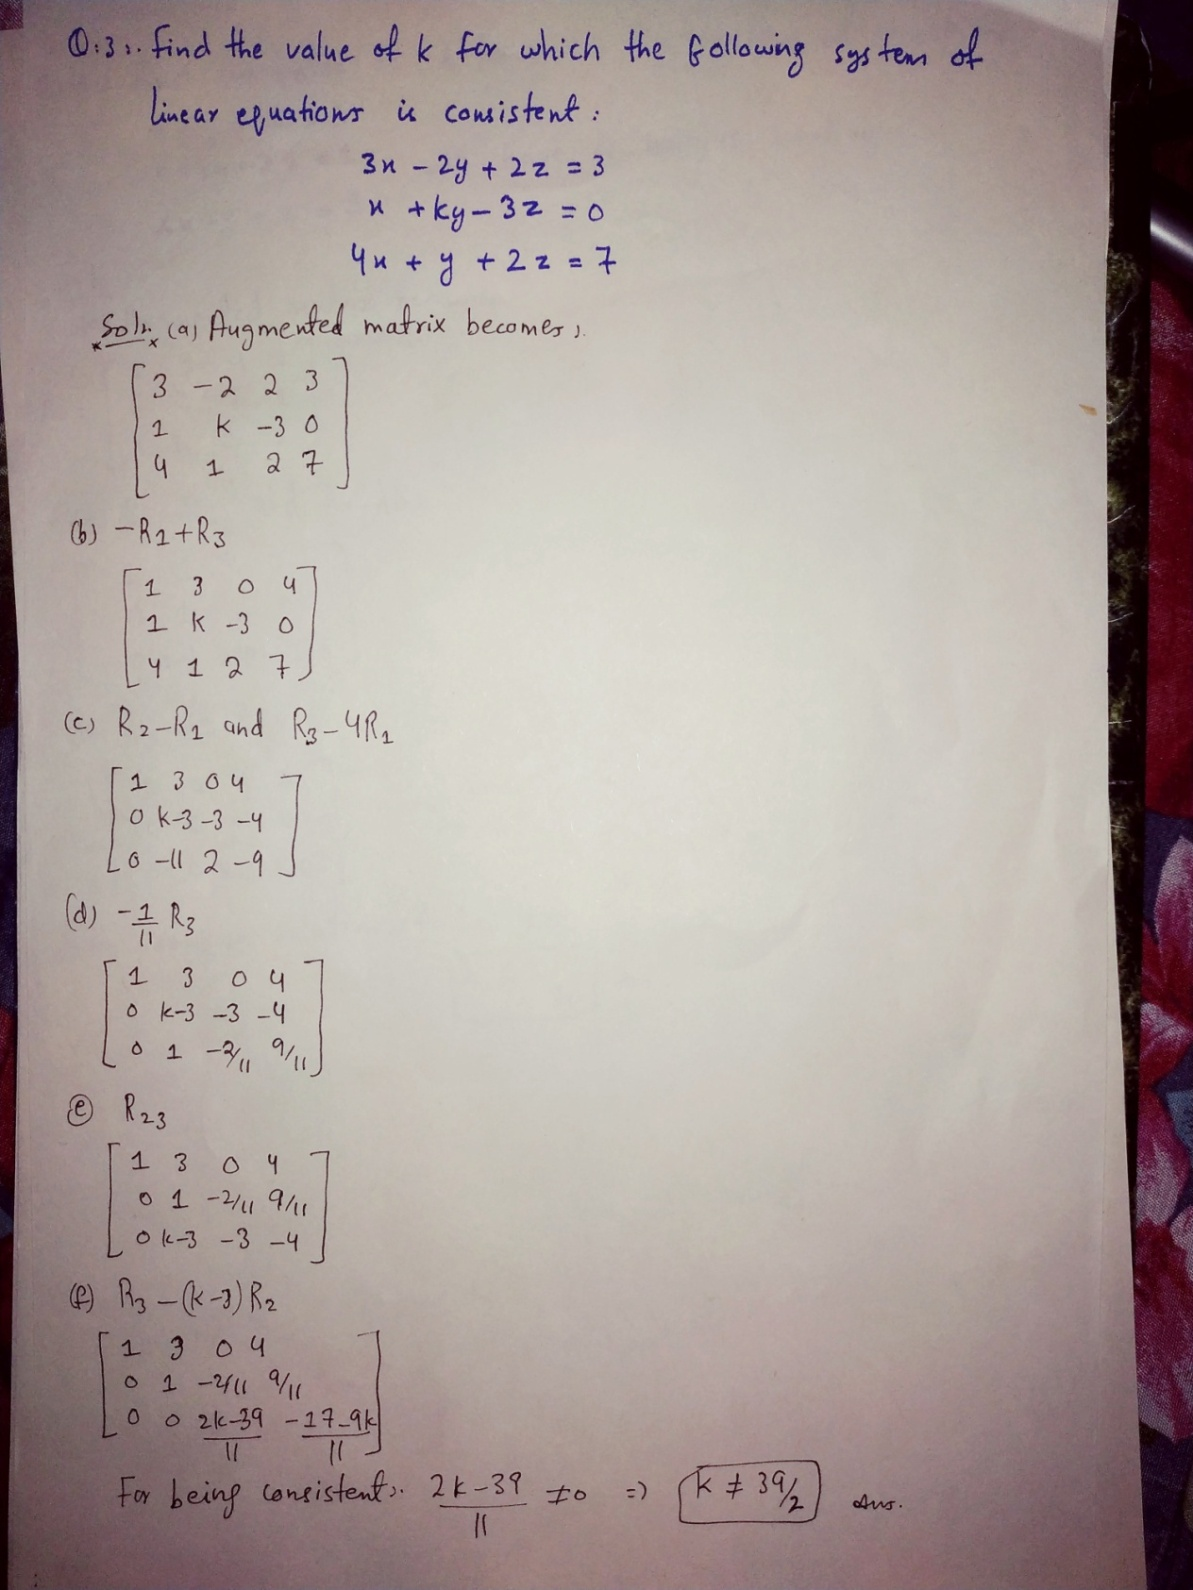 Q:3:. Find the value of k for which the following system of
linear equations is consistent:
3x - 2y + 2z = 3
x + ky - 3z = 0
4x + y + 2z = 7
Soln. (a) Augmented matrix becomes:.
[3 -2 2 3
1 k -3 0
4 1 2 7]
(b) -R1+R3
[1 3 0 4
1 k -3 0
4 1 2 7]
(c) R2-R1 and R3-4R1
[1 3 0 4
0 k-3 -3 -4
0 -11 2 -9]
(d) -1/11 R3
[1 3 0 4
0 k-3 -3 -4
0 1 -2/11 9/11]
(e) R23
[1 3 0 4
0 1 -2/11 9/11
0 k-3 -3 -4]
(f) R3-(k-3)R2
[1 3 0 4
0 1 -2/11 9/11
0 0 2k-39/11 -17-9k/11]
For being consistent:. 2k-39/11 ≠0 => k ≠ 39/2 Ans.